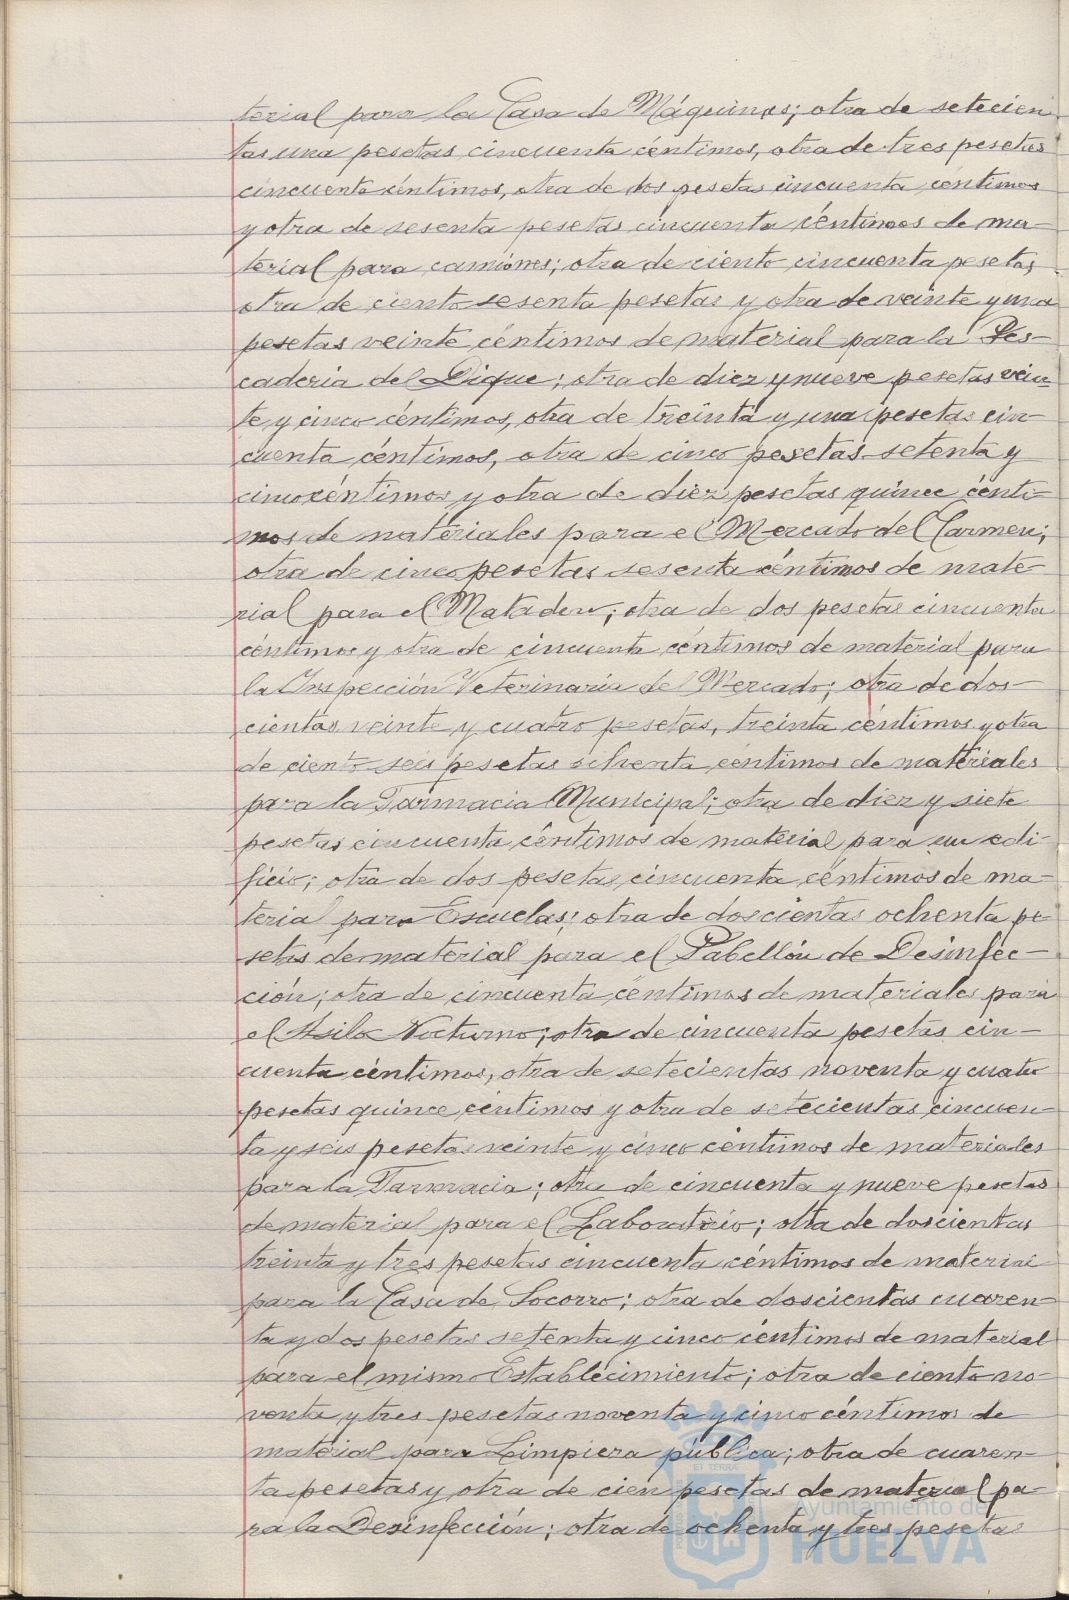 terial para la Casa de Máquinas; otra de setecien
tas una pesetas cincuenta céntimos, otra de tres pesetas
cincuenta céntimos, otra de dos pesetas cincuenta céntimos
y otra de sesenta pesetas cincuenta céntimos de ma-
terial para camiones; otra de ciento cincuenta pesetas
otra de ciento sesenta pesetas y otra de veinte y una
pesetas veinte céntimos de material para la Pes-
caderia del Dique; otra de diez y nueve pesetas vein-
te y cinco céntimos, otra de treinta y una pesetas cin-
cuenta céntimos, otra de cinco pesetas setenta y
cinco céntimos y otra de diez pesetas quince cénti-
mos de materiales para el Mercado del Carmen;
otra de cinco pesetas sesenta céntimos de mate-
rial para el Matadero; otra de dos pesetas cincuenta
céntimos y otra de cincuenta céntimos de material para
la Inspección Veterinaria del Mercado; otra de dos-
cientas veinte y cuatro pesetas, treinta céntimos y otra
de ciento seis pesetas ochenta céntimos de materiales
para la Farmacia Municipal; otra de diez y siete
pesetas cincuenta céntimos de material para un edi-
ficio; otra de dos pesetas cincuenta céntimos de ma-
terial para Escuelas; otra de doscientas ochenta pe
setas de material para el Pabellón de Desinfec-
ción; otra de cincuenta céntimos de materiales para
el Asilo Nocturno; otra de cincuenta pesetas cin-
cuenta céntimos, otra de setecientas noventa y cuatro
pesetas quince céntimos y otra de setecientas cincuen-
ta y seis pesetas veinte y cinco céntimos de materiales
para la Farmacia; otra de cincuenta y nueve pesetas
de material para el Laboratorio; otra de doscientas
treinta y tres pesetas cincuenta céntimos de material
para la Casa de Socorro; otra de doscientas cuaren-
ta y dos pesetas setenta y cinco céntimos de material
para el mismo Establecimiento; otra de ciento no-
venta y tres pesetas noventa y cinco céntimos de
material para Limpieza pública; otra de cuaren-
ta pesetas y otra de cien pesetas de material pa-
ra la Desinfección; otra de ochenta y tres pesetas
Ayuntamiento de
HUELVA